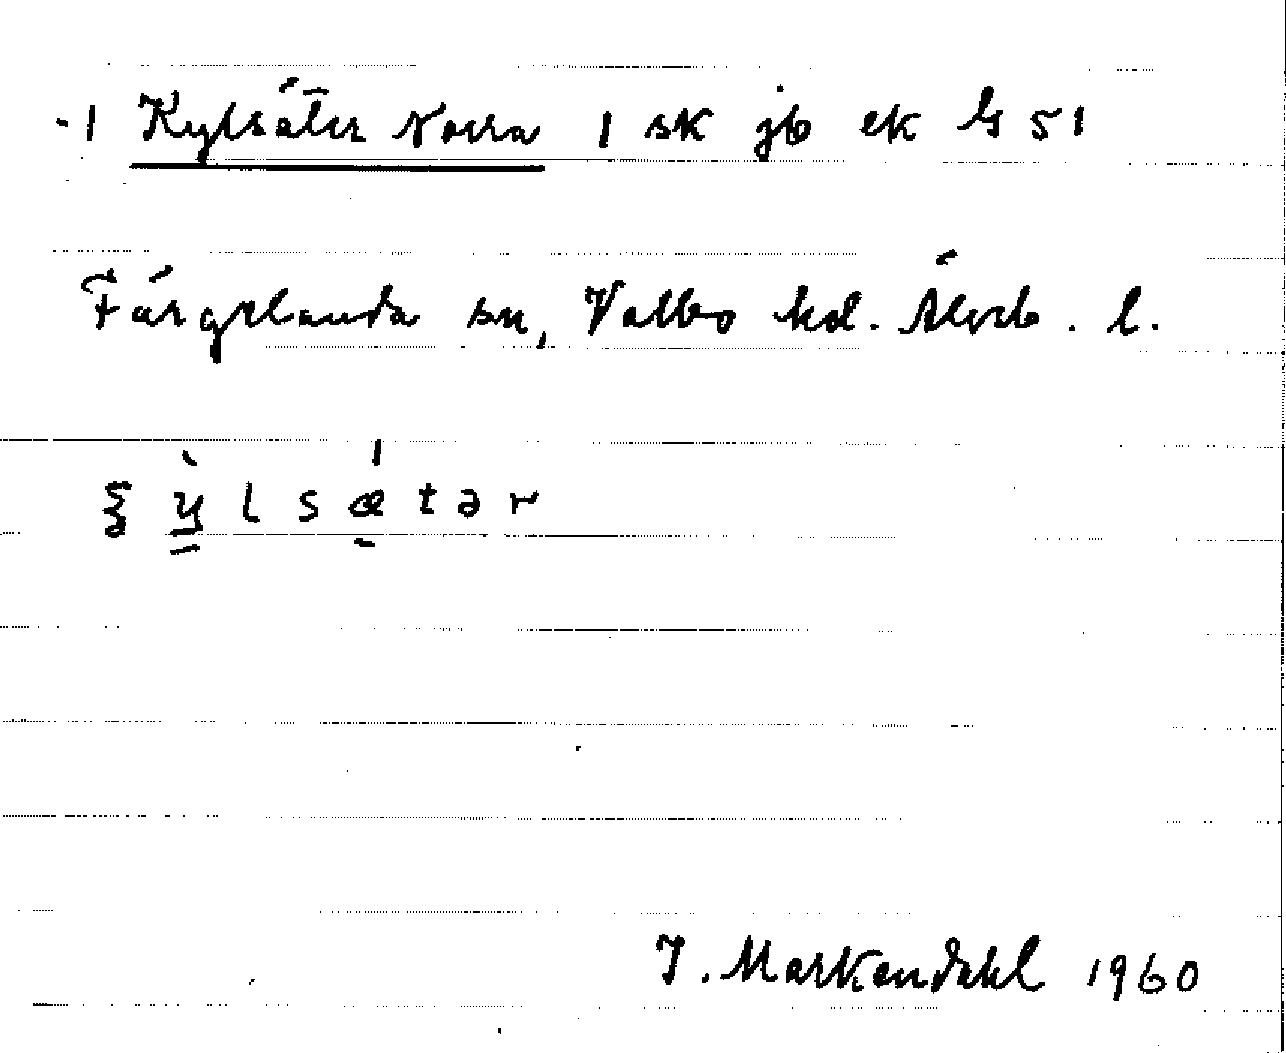 -1 Kylsäter Norra 1 sk jb ek G 51
Färgelanda sn, Valbo hd. Älvsb. l.
ξ ỳ̲ l s ǽ̠ t ə r
J. Markendahl 1960